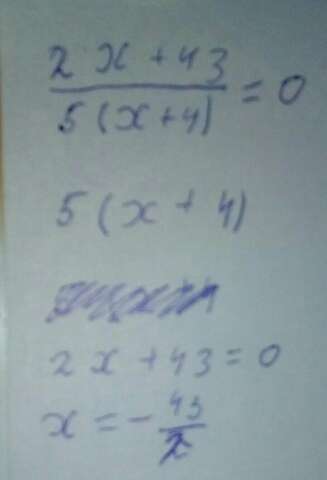 2x + 43
5(x+4) = 0
5(x + 4)
2x + 43 = 0
x = - 43/2